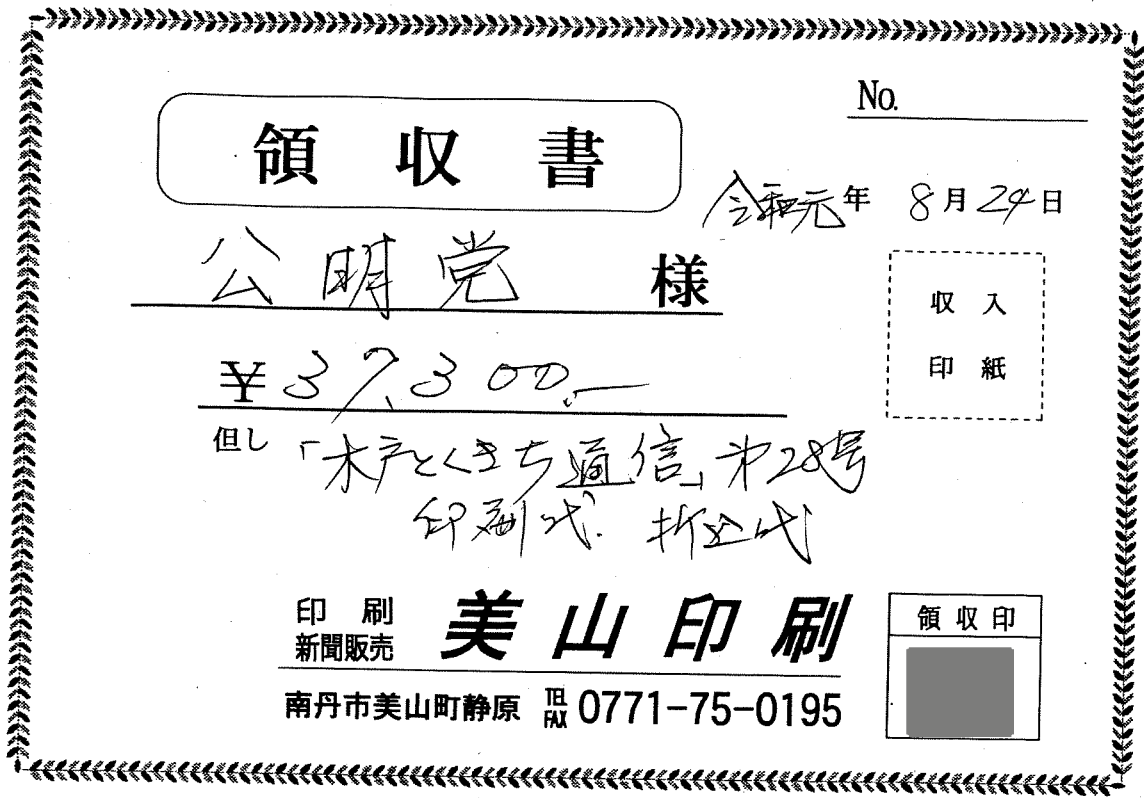 No.
領収書
令和元年 8月24日
公明党 様
収入
印紙
¥37,300.-
但し 「木戸とくきち通信」第28号
印刷代、折込代
印刷
新聞販売
美山印刷
領収印
南丹市美山町静原 TEL FAX 0771-75-0195